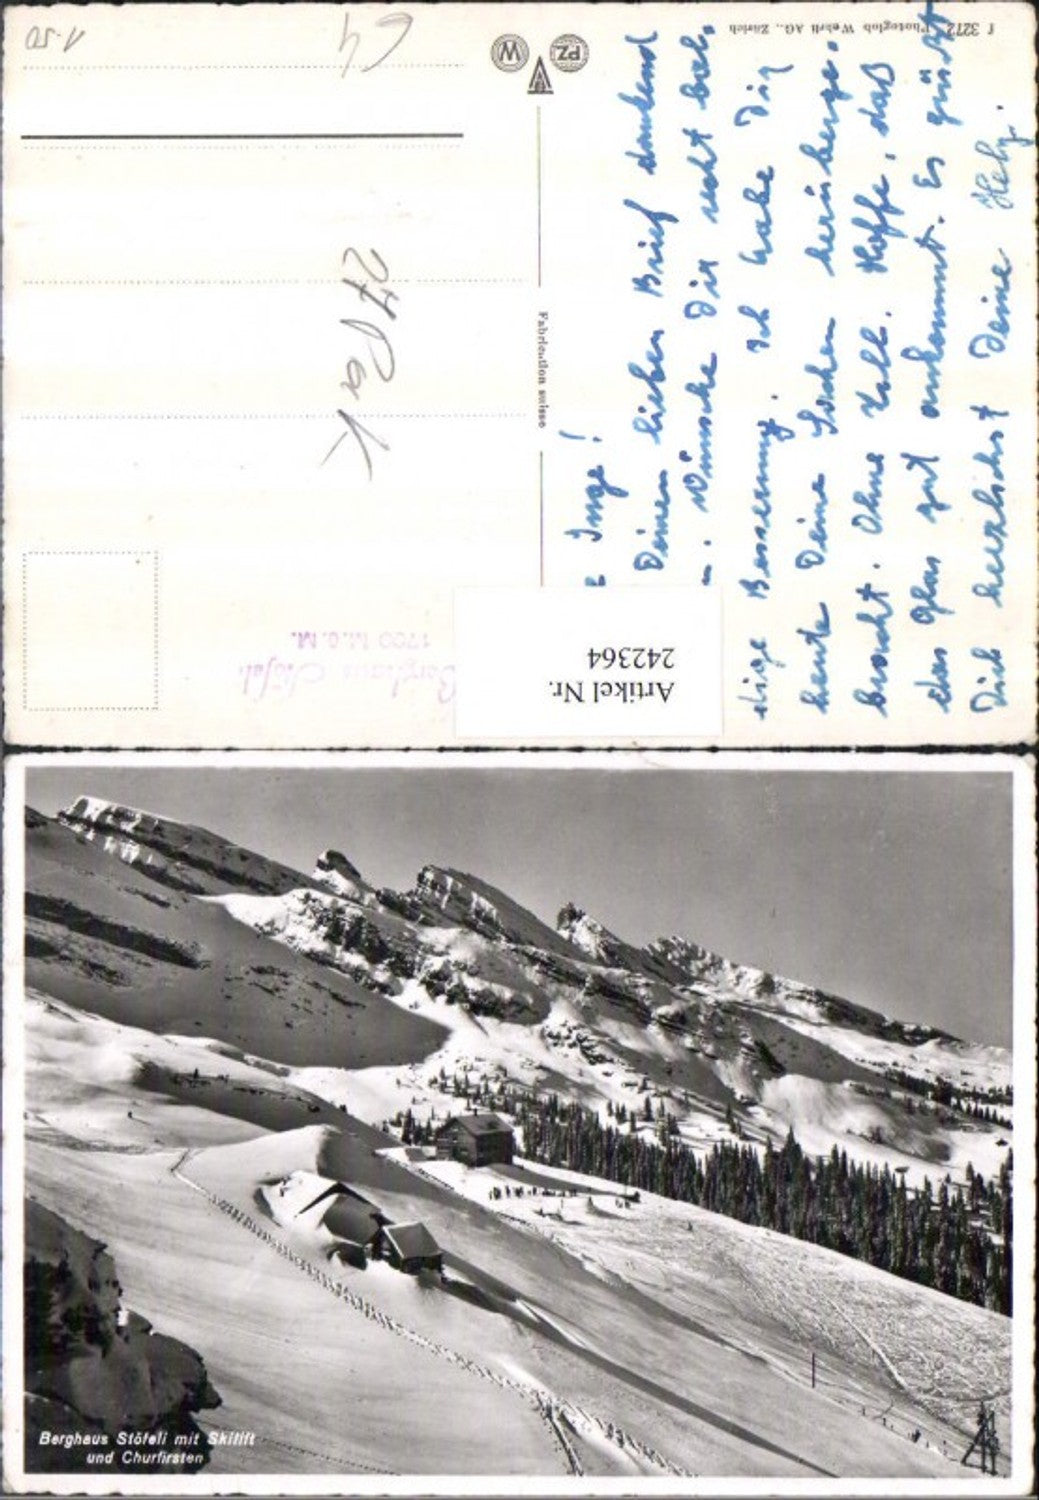 1.50
C4
27 Pa K
f 3272 Photoglob Wehrli AG., Zürich
PZ
W
Fabrication suisse
Berghaus Stöfeli
1700 M.ü.M.
Artikel Nr.
242364
Inge!
Deinen lieben Brief dankend
. Wünsche Dir recht bal-
dige Besserung. Ich habe Dir
heute Deine Sachen herüberge-
bracht. Ohne Zoll. Hoffe, daß
das Glas gut ankommt. Es grüßt
Dich herzlichst Deine
Berghaus Stöfeli mit Skilift
und Churfirsten